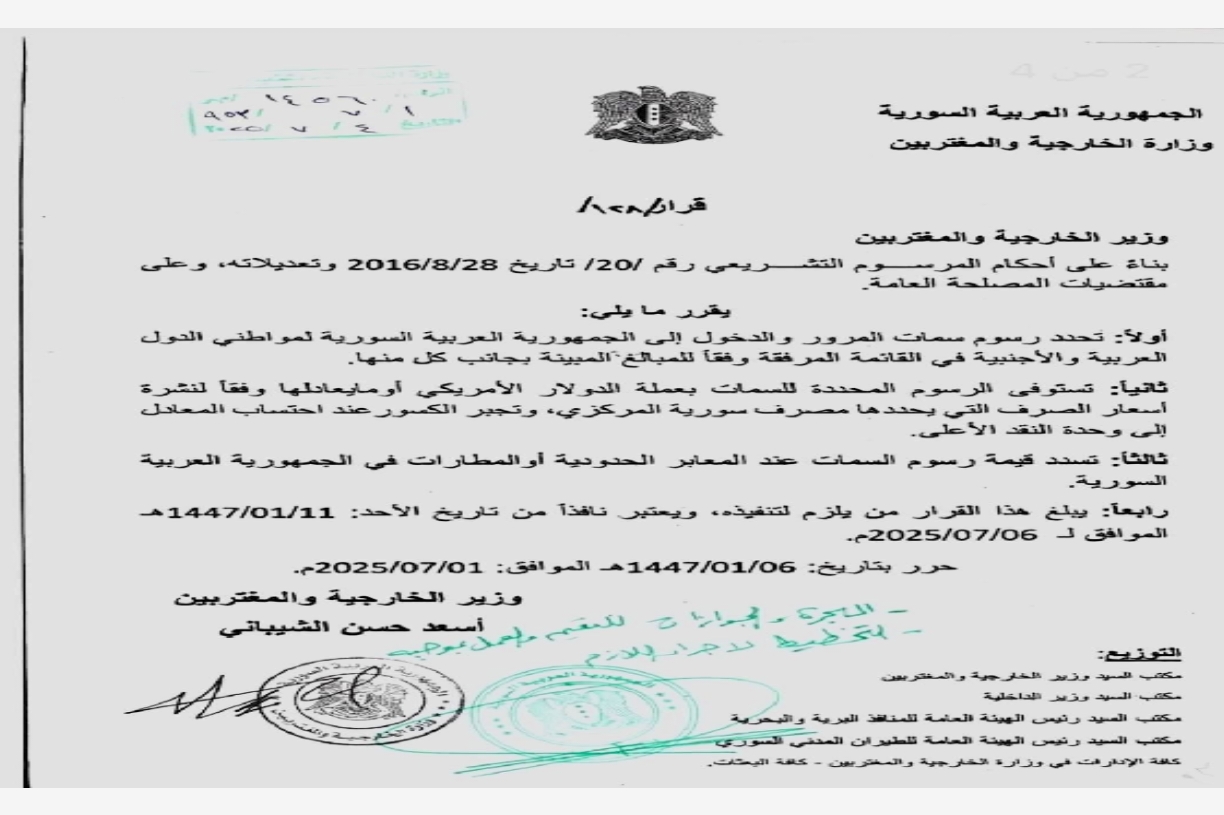 2 من 4
الجمهورية العربية السورية
وزارة الخارجية والمغتربين
١٤٥٦٠
٩٥٣/
٢٠٢٥/ ٧ / ٤
قرار/١٢٨/
وزير الخارجية والمغتربين
بناءً على أحكام المرســـوم التشـــريعي رقم /20/ تاريخ 2016/8/28 وتعديلاته، وعلى
مقتضيات المصلحة العامة.
يقرر ما يلي:
أولاً: تحدد رسوم سمات المرور والدخول إلى الجمهورية العربية السورية لمواطني الدول
العربية والأجنبية في القائمة المرفقة وفقاً للمبالغ المبينة بجانب كل منها.
ثانياً: تستوفى الرسوم المحددة للسمات بعملة الدولار الأمريكي أومايعادلها وفقاً لنشرة
أسعار الصرف التي يحددها مصرف سورية المركزي، وتجبر الكسورعند احتساب المعادل
إلى وحدة النقد الأعلى.
ثالثاً: تسدد قيمة رسوم السمات عند المعابر الحدودية أوالمطارات في الجمهورية العربية
السورية.
رابعاً: يبلغ هذا القرار من يلزم لتنفيذه، ويعتبر نافذاً من تاريخ الأحد: 1447/01/11هـ
الموافق لـ 2025/07/06م.
حرر بتاريخ: 1447/01/06هـ الموافق: 2025/07/01م.
وزير الخارجية والمغتربين
أسعد حسن الشيباني
- الهجرة والجوازات للتعميم والعمل بموجبه
- التخطيط لاجراء اللازم
التوزيع:
مكتب السيد وزير الخارجية والمغتربين
مكتب السيد وزير الداخلية
مكتب السيد رئيس الهيئة العامة للمنافذ البرية والبحرية
مكتب السيد رئيس الهيئة العامة للطيران المدني السوري
كافة الإدارات في وزارة الخارجية والمغتربين - كافة البعثات.